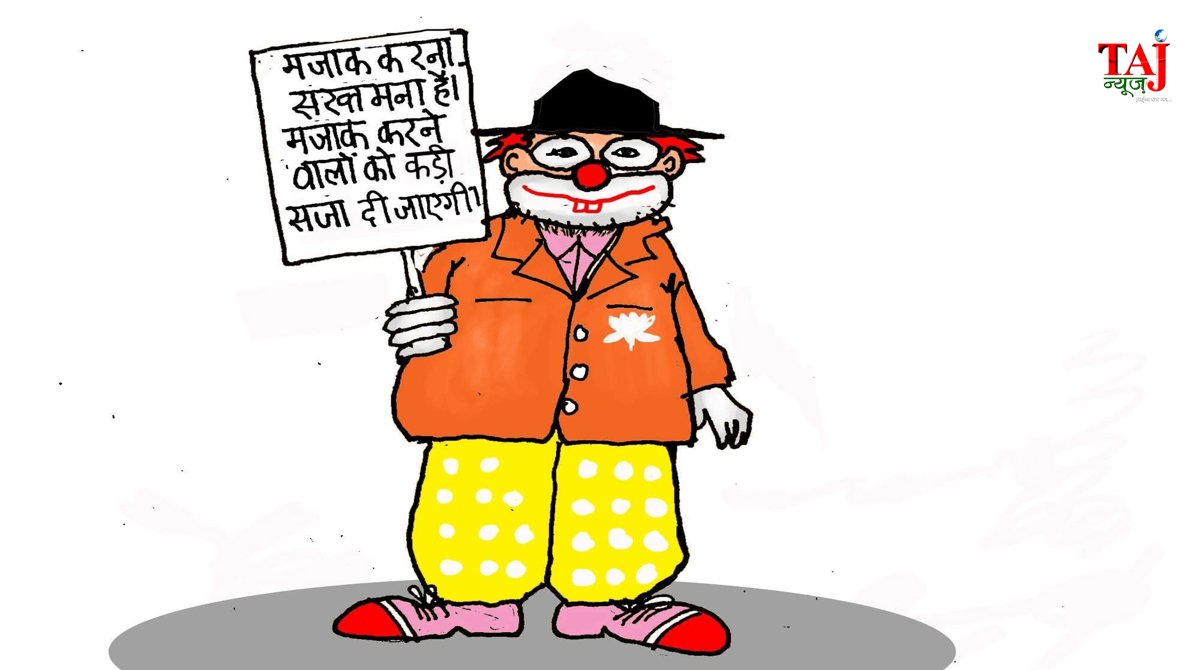 मजाक करना
सख्त मना है।
मजाक करने
वालों को कड़ी
सजा दी जाएगी
TAJ
न्यूज़